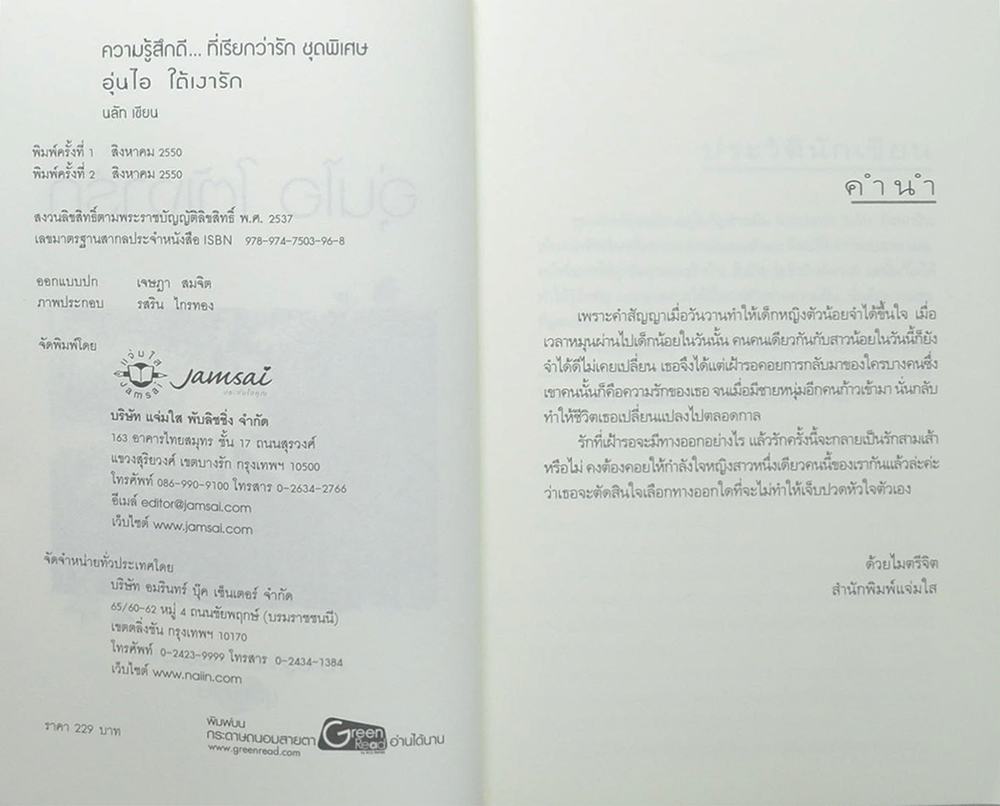 ความรู้สึกดี... ที่เรียกว่ารัก ชุดพิเศษ
อุ่นไอ ใต้เงารัก
นลัท เขียน
พิมพ์ครั้งที่ 1 สิงหาคม 2550
พิมพ์ครั้งที่ 2 สิงหาคม 2550
สงวนลิขสิทธิ์ตามพระราชบัญญัติลิขสิทธิ์ พ.ศ. 2537
เลขมาตรฐานสากลประจำหนังสือ ISBN 978-974-7503-96-8
ออกแบบปก เจษฎา สมจิต
ภาพประกอบ รสริน ไกรทอง
จัดพิมพ์โดย
แจ่มใส
Jamsai
Jamsai
บริษัท แจ่มใส พับลิชชิ่ง จำกัด
163 อาคารไทยสมุทร ชั้น 17 ถนนสุรวงศ์
แขวงสุริยวงศ์ เขตบางรัก กรุงเทพฯ 10500
โทรศัพท์ 086-990-9100 โทรสาร 0-2634-2766
อีเมล์ editor@jamsai.com
เว็บไซต์ www.jamsai.com
จัดจำหน่ายทั่วประเทศโดย
บริษัท อมรินทร์ บุ๊ค เซ็นเตอร์ จำกัด
65/60-62 หมู่ 4 ถนนชัยพฤกษ์ (บรมราชชนนี)
เขตตลิ่งชัน กรุงเทพฯ 10170
โทรศัพท์ 0-2423-9999 โทรสาร 0-2434-1384
เว็บไซต์ www.naiin.com
ราคา 229 บาท
พิมพ์บน
กระดาษถนอมสายตา Green Read อ่านได้นาน
www.greenread.com
คำนำ
เพราะคำสัญญาเมื่อวันวานทำให้เด็กหญิงตัวน้อยจำได้ขึ้นใจ เมื่อ
เวลาหมุนผ่านไปเด็กน้อยในวันนั้น คนคนเดียวกันกับสาวน้อยในวันนี้ก็ยัง
จำได้ดีไม่เคยเปลี่ยน เธอจึงได้แต่เฝ้ารอคอยการกลับมาของใครบางคนซึ่ง
เขาคนนั้นก็คือความรักของเธอ จนเมื่อมีชายหนุ่มอีกคนก้าวเข้ามา นั่นกลับ
ทำให้ชีวิตเธอเปลี่ยนแปลงไปตลอดกาล
รักที่เฝ้ารอจะมีทางออกอย่างไร แล้วรักครั้งนี้จะกลายเป็นรักสามเส้า
หรือไม่ คงต้องคอยให้กำลังใจหญิงสาวหนึ่งเดียวคนนี้ของเรากันแล้วล่ะค่ะ
ว่าเธอจะตัดสินใจเลือกทางออกใดที่จะไม่ทำให้เจ็บปวดหัวใจตัวเอง
ด้วยไมตรีจิต
สำนักพิมพ์แจ่มใส